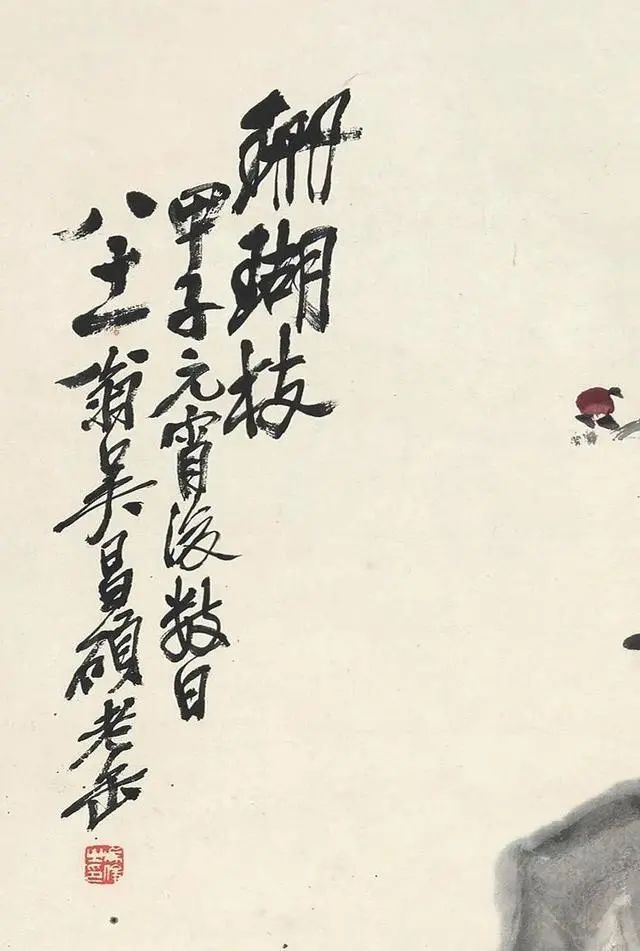 珊瑚枝
甲子元宵後數日
八十一翁吳昌碩老缶